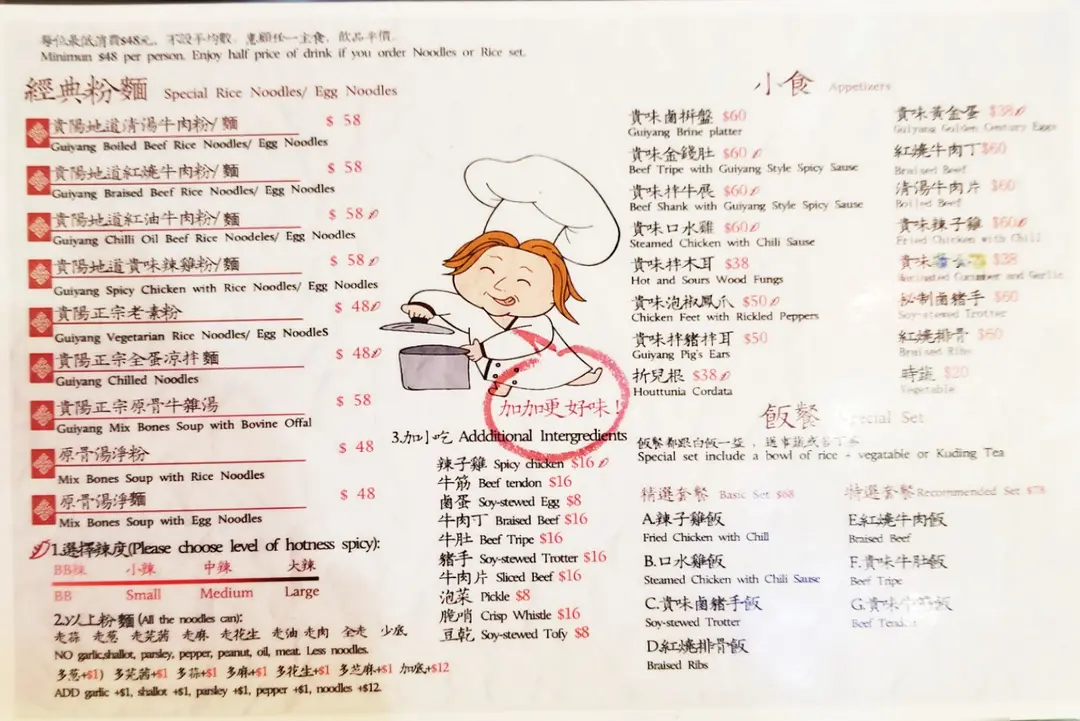 每位最低消費$48元，不設平均數，惠顧任一主食，飲品半價。
Minimun $48 per person. Enjoy half price of drink if you order Noodles or Rice set.
經典粉麵 Special Rice Noodles/ Egg Noodles
貴陽地道清湯牛肉粉/麵 $ 58
Guiyang Boiled Beef Rice Noodles/ Egg Noodles
貴陽地道紅燒牛肉粉/麵 $ 58
Guiyang Braised Beef Rice Noodles/ Egg Noodles
貴陽地道紅油牛肉粉/麵 $ 58
Guiyang Chilli Oil Beef Rice Noodeles/ Egg Noodles
貴陽地道貴味辣雞粉/麵 $ 58
Guiyang Spicy Chicken with Rice Noodles/ Egg Noodles
貴陽正宗老素粉 $ 48
Guiyang Vegetarian Rice Noodles/ Egg NoodleS
貴陽正宗全蛋凉拌麵 $ 48
Guiyang Chilled Noodles
貴陽正宗原骨牛雜湯 $ 58
Guiyang Mix Bones Soup with Bovine Offal
原骨湯淨粉 $ 48
Mix Bones Soup with Rice Noodles
原骨湯淨麵 $ 48
Mix Bones Soup with Egg Noodles
1.選擇辣度(Please choose level of hotness spicy):
BB辣 小辣 中辣 大辣
BB Small Medium Large
2.以上粉麵 (All the noodles can):
走蒜 走葱 走芫茜 走麻 走花生 走油 走肉 全走 少底
NO garlic,shallot, parsley, pepper, peanut, oil, meat. Less noodles.
多葱+$1) 多芫茜+$1 多蒜+$1 多麻+$1 多花生+$1 多芝麻+$1 加底+$12
ADD garlic +$1, shallot +$1, parsley +$1, pepper +$1, noodles +$12.
加加更好味!
3.加小吃 Addditional Intergredients
辣子雞 Spicy chicken $16
牛筋 Beef tendon $16
鹵蛋 Soy-stewed Egg $8
牛肉丁 Braised Beef $16
牛肚 Beef Tripe $16
豬手 Soy-stewed Trotter $16
牛肉片 Sliced Beef $16
泡菜 Pickle $8
脆哨 Crisp Whistle $16
豆乾 Soy-stewed Tofy $8
小食 Appetizers
貴味鹵拼盤 $60
Guiyang Brine platter
貴味金錢肚 $60
Beef Tripe with Guiyang Style Spicy Sause
貴味拌牛展 $60
Beef Shank with Guiyang Style Spicy Sause
貴味口水雞 $60
Steamed Chicken with Chili Sause
貴味拌木耳 $38
Hot and Sours Wood Fungs
貴味泡椒鳳爪 $50
Chicken Feet with Rickled Peppers
貴味拌豬拌耳 $50
Guiyang Pig's Ears
折兒根 $38
Houttunia Cordata
貴味黃金蛋 $38
Guiyang Golden Century Eggs
紅燒牛肉丁 $60
Braised Beef
清湯牛肉片 $60
Boiled Beef
貴味辣子雞 $60
Fried Chicken with Chili
貴味 $38
Marinated Cucumber and Garlic
秘制鹵豬手 $60
Soy-stewed Trotter
紅燒排骨 $60
Braised Ribs
時蔬 $20
Vegetable
飯餐 Special Set
飯餐都跟白飯一盅，送事蔬或苦丁茶
Special set include a bowl of rice + vegatable or Kuding Tea
精選套餐 Basic Set $68
A.辣子雞飯
Fried Chicken with Chili
B.口水雞飯
Steamed Chicken with Chili Sause
C.貴味鹵豬手飯
Soy-stewed Trotter
D紅燒排骨飯
Braised Ribs
特選套餐 Recommended Set $78
E紅燒牛肉飯
Braised Beef
F.貴味牛肚飯
Beef Tripe
G.貴味牛筋飯
Beef Tendon